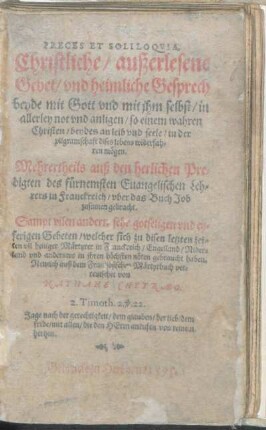 PRECES ET SOLILOQVIA.
Christliche / außerlesene
Gebet / vnd heimliche Gesprech
beyde mit Gott vnd mit jhm selbst / in
allerley not vnd anligen / so einem wahren
Christen / beyden an leib vnd seele / in der
pilgramschafft dises lebens widerfah-
ren mögen.
Mehrertheils auß den herlichen Pre-
digten des fürnemsten Euangelischen Leh-
rers in Franckreich / vber das Buch Job
zusamen gebracht.
Sampt vilen andern, sehr gotseligen vnd ey-
ferigen Gebeten / welcher sich in disen letzten zei-
ten vil heiliger Märtyrer in Franckreich / Engelland / Nider-
land vnd anderswo in jhren höchsten nöten gebraucht haben.
2. Timoth. 2. v. 22.
Jage nach der gerechtigkeit / dem glauben / der lieb dem
friden mit allen / die den HErrn anruffen von reinem
hertzen.